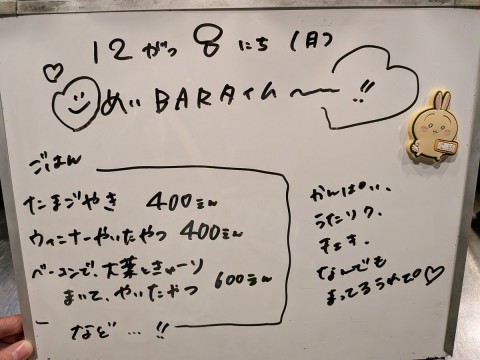 12がつ8にち(月)
めいBARタイム〜〜!!
ごはん
たまごやき 400えん
ウィンナーやいたやつ 400えん
ベーコンで、大葉ときゅーり
まいて、やいたやつ 600えん
など…!!
かんぱい、
うたリク、
チェキ、
なんでも
まってるうれぴ♡